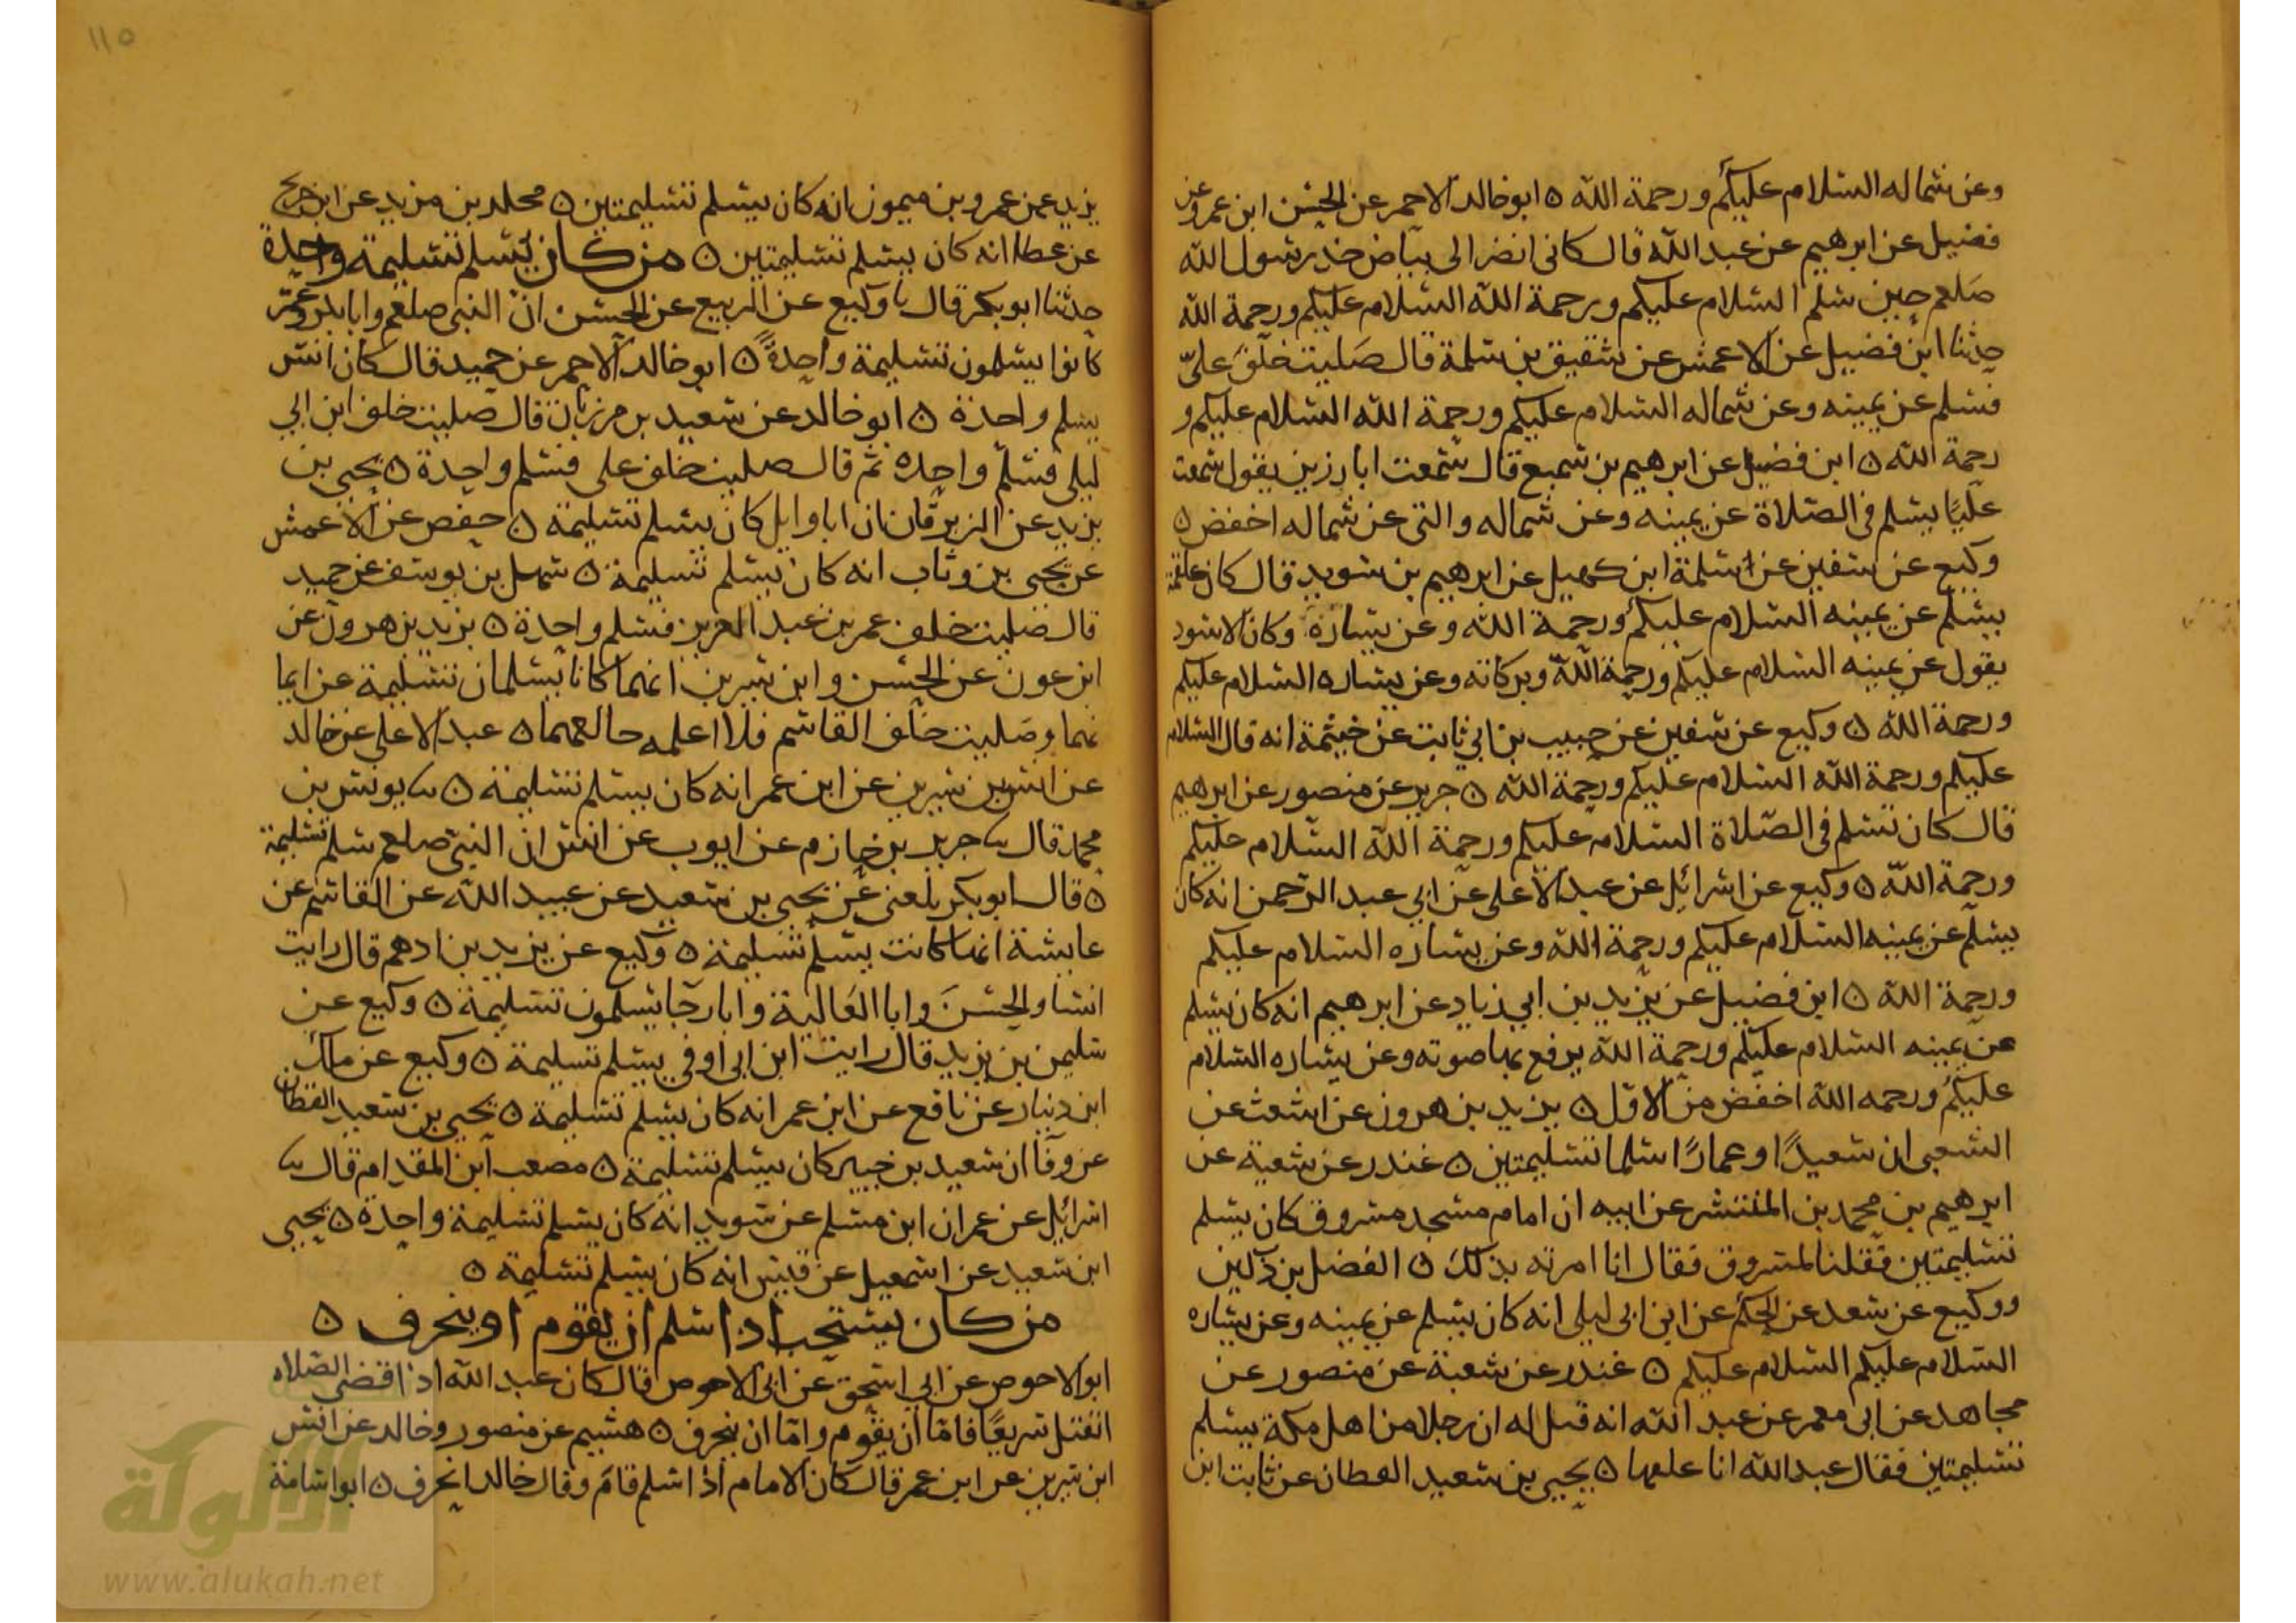 وعن شماله السلام عليكم ورحمة الله ه ابو خالد الاحمر عن الحسن ابن عمرو عن
فضيل عن ابرهيم عن عبد الله قال كاني انضر الى بياض خد رسول الله
صلعم حين سلم السلام عليكم ورحمة الله السلام عليكم ورحمة الله
حدثنا ابن فضيل عن الاعمش عن شقيق بن سلمة قال صليت خلف علي
فسلم عن يمينه وعن شماله السلام عليكم ورحمة الله السلام عليكم و
رحمة الله ه ابن فضيل عن ابرهيم بن سميع قال سمعت ابا رزين يقول سمعت
عليا يسلم في الصلاة عن يمينه وعن شماله والتي عن شماله اخفض ه
وكيع عن سفين عن سلمة ابن كهيل عن ابرهيم بن سويد قال كان علقمة
يسلم عن يمينه السلام عليكم ورحمة الله وعن يساره وكان الاسود
يقول عن يمينه السلام عليكم ورحمة الله وبركاته وعن يساره السلام عليكم
ورحمة الله ه وكيع عن سفين عن حبيب بن ابي ثابت عن خيثمة انه قال السلام
عليكم ورحمة الله السلام عليكم ورحمة الله ه جرير عن منصور عن ابرهيم
قال كان تسلم في الصلاة السلام عليكم ورحمة الله السلام عليكم
ورحمة الله ه وكيع عن اسرائل عن عبد الاعلى عن ابي عبد الرحمن انه كان
يسلم عن يمينه السلام عليكم ورحمة الله وعن يساره السلام عليكم
ورحمة الله ه ابن فضيل عن يزيد بن ابي زياد عن ابرهيم انه كان يسلم
عن يمينه السلام عليكم ورحمة الله يرفع بها صوته وعن يساره السلام
عليكم ورحمه الله اخفض من الاول ه يزيد بن هرون عن اشعث عن
الشعبي ان سعيدا او عمارا سلما تسليمتين ه غندر عن شعبة عن
ابرهيم بن محمد بن المنتشر عن ابيه ان امام مسجد مسروق كان يسلم
تسليمتين فقلنا لمسروق فقال انا امرته بذلك ه الفضل بن دكين
ووكيع عن سعد عن الحكم عن ابن ابي ليلى انه كان يسلم عن يمينه وعن يساره
السلام عليكم السلام عليكم ه غندر عن شعبة عن منصور عن
مجاهد عن ابي معمر عن عبد الله انه قيل له ان رجلا من اهل مكة يسلم
تسليمتين فقال عبد الله انا علمها ه يحيى بن سعيد القطان عن ثابت ابن
١١٥
يزيد عمن عمرو بن ميمون انه كان يسلم تسليمتين ه محلد بن مزيد عن ابن جريج
عن عطا انه كان يسلم تسليمتين ه من كان يسلم تسليمة واحدة
حدثنا ابو بكر قال نا وكيع عن الربيع عن الحسن ان النبي صلعم وابا بكر وعمر
كانوا يسلمون تسليمة واحدة ه ابو خالد الاحمر عن حميد قال كان انس
يسلم واحدة ه ابو خالد عن سعيد بن مرزبان قال صليت خلف ابن ابي
ليلى فسلم واحده ثم قال صليت خلف علي فسلم واحدة ه يحيى بن
يزيد عن الزبرقان ان ابا وايل كان يسلم تسليمة ه حفص عن الاعمش
عن يحيى بن وثاب انه كان يسلم تسليمة ه سهل بن يوسف عن حميد
قال صليت خلف عمر بن عبد العزيز فسلم واحدة ه يزيد بن هرون عن
ابن عون عن الحسن وابن سيرين انهما كانا يسلمان تسليمة عن ايما
نهما وصليت خلف القاسم فلا اعلمه خالفهما ه عبد الاعلى عن خالد
عن انس بن سيرين عن ابن عمر انه كان يسلم تسليمة ه نا يونس بن
محمد قال نا جرير بن حازم عن ايوب عن انس ان النبي صلعم سلم تسليمة
ه قال ابو بكر بلغني عن يحيى بن سعيد عن عبيد الله عن القاسم عن
عايشة انها كانت يسلم تسليمة ه وكيع عن يزيد بن ادهم قال رايت
انسا والحسن وابا العالية وابا رجا يسلمون تسليمة ه وكيع عن
سليمن بن يزيد قال رايت ابن ابي اوفى يسلم تسليمة ه وكيع عن مالك
ابن دينار عن نافع عن ابن عمر انه كان يسلم تسليمة ه يحيى بن سعيد القطان
عن وقا ان سعيد بن جبير كان يسلم تسليمة ه مصعب ابن المقدام قال نا
اسرائيل عن عمران ابن مسلم عن سويد انه كان يسلم تسليمة واحدة ه يحيى
ابن سعيد عن اسمعيل عن قيس انه كان يسلم تسليمة ه
من كان يستحب اذا سلم ان يقوم او ينحرف ه
ابو الاحوص عن ابي اسحق عن ابي الاحوص قال كان عبد الله اذا قضى الصلاه
انفتل سريعا فاما ان يقوم واما ان ينحرف ه هشيم عن منصور وخالد عن انس
ابن سيرين عن ابن عمر قال كان الامام اذا سلم قام وقال خالد انحرف ه ابو اسامة
الألوكة
www.alukah.net